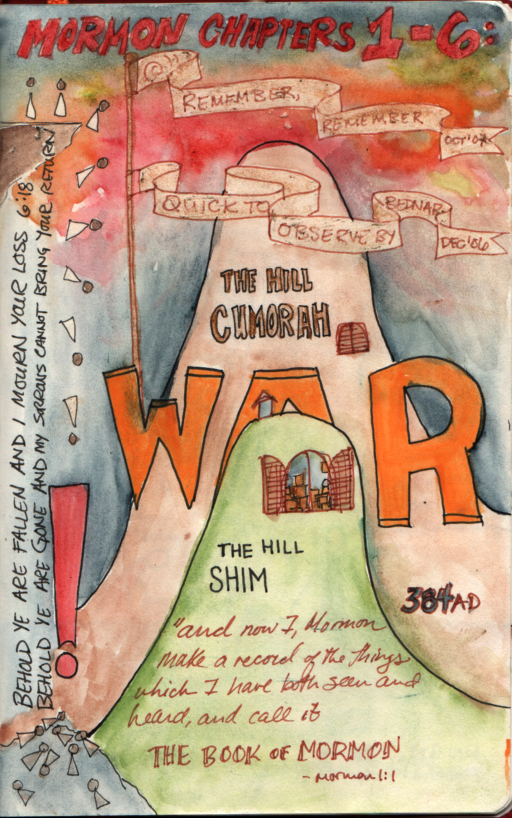 MORMON CHAPTERS 1-6:
REMEMBER,
REMEMBER
OCT '07
QUICK TO
OBSERVE BY
BEDNAR
DEC '06
THE HILL
CUMORAH
WAR
!
THE HILL
SHIM
384 AD
"and now I, Mormon
make a record of the things
which I have both seen and
heard, and call it
THE BOOK OF MORMON
- Mormon 1:1
BEHOLD YE ARE FALLEN AND I MOURN YOUR LOSS 6:18
BEHOLD YE ARE GONE AND MY SORROWS CANNOT BRING YOUR RETURN